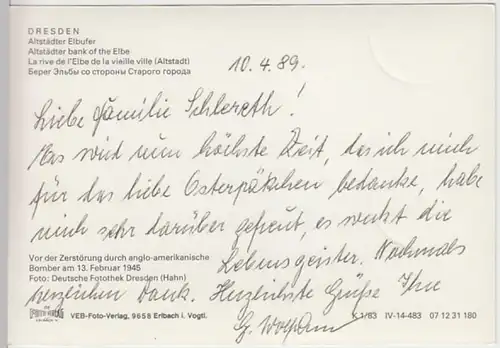 DRESDEN
Altstädter Elbufer
Altstädter bank of the Elbe
La rive de l'Elbe de la vieille ville (Altstadt)
Берег Эльбы со стороны Старого города
10.4.89.
Liebe Familie Schlereth!
Es wird nun höchste Zeit, das ich mich
für das liebe Osterpäkchen bedanke, habe
mich sehr darüber gefreut, es weckt die
Lebensgeister. Nochmals
herzlichen Dank. Herzlichste Grüße Ihre
G. Wolfram
Vor der Zerstörung durch anglo-amerikanische
Bomber am 13. Februar 1945
Foto: Deutsche Fotothek Dresden (Hahn)
VEB-Foto-Verlag, 9658 Erlbach i. Vogtl.
K 1/83 IV-14-483 07 12 31 180